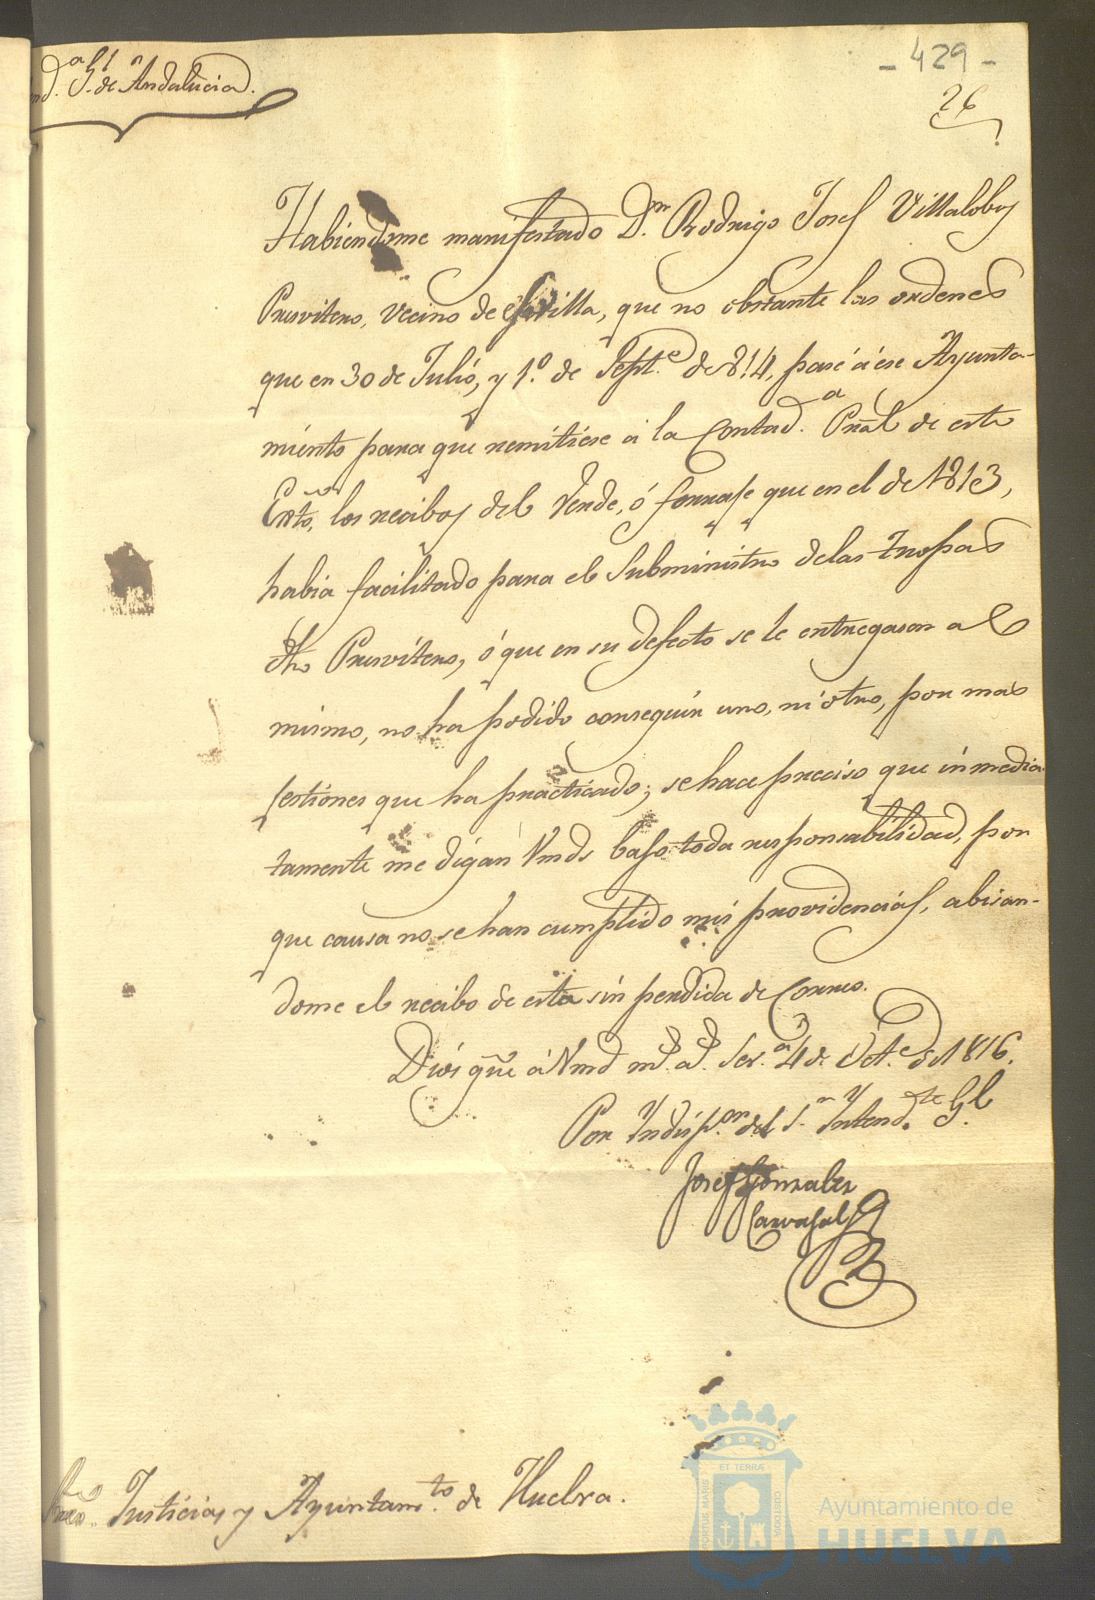 - 429 -
26
nd.ª Gl. de Andalucia.
Habiendome manifestado Dn. Rodrigo Josef Villalobos
Presvitero, vecino de Sevilla, que no obstante las ordenes
que en 30 de Julio, y 1.º de Sept.e de 814, pasé á ese Ayunta-
miento para que remitiese á la Contad.a Pral de este
Exto, los recibos del Verde, ó forrase que en el de 1813,
habia facilitado para el Subministro de las tropas
dho Presvitero, ó que en su defecto se le entregasen al
mismo, no ha podido conseguir uno, ni otro, por mas
gestiones que ha practicado; se hace preciso que inmedia-
tamente me digan Vmds bajo toda responsabilidad, por
que causa no se han cumplido mis providencias, abisan-
dome el recibo de esta sin perdida de Correo.
Dios gue á Vmd ms. as. Sev.a 4 de Oct.e de 1816.
Por Indisp.on del Sr. Intend.te Gl
Josef Gonzalez
Carvajal
Justicias y Ayuntam.to de Huelva.
PORTUS MARIS
ET TERRÆ
CUSTODIA
Ayuntamiento de
HUELVA